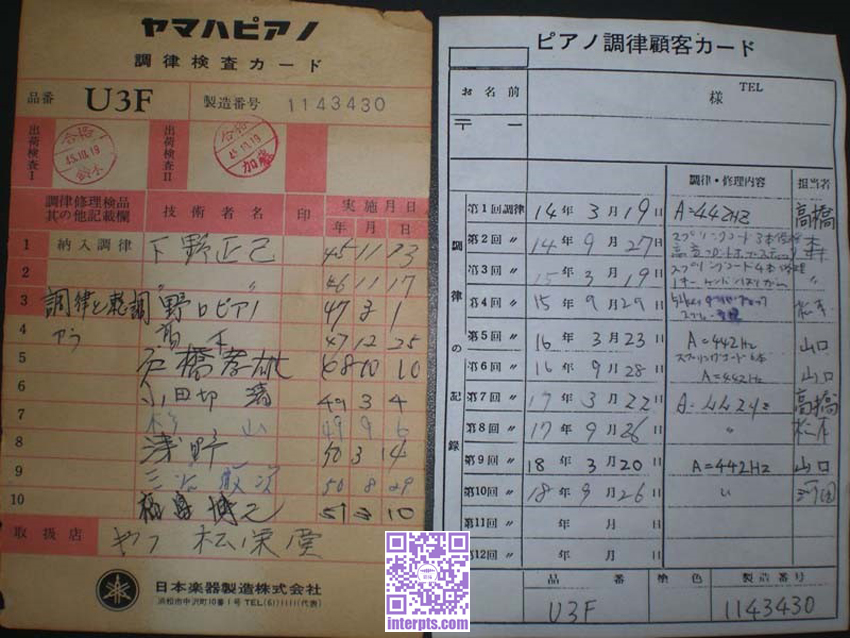 ヤマハピアノ
調律検査カード
品番 U3F 製造番号 1143430
出荷検査I 合格 45.10.19 鈴木 出荷検査II 合格 45.10.19 加藤
調律修理検品
其の他記載欄 技術者名 印 実施月日
年 月 日
1 納入調律 下野正己 45 11 23
2 〃 〃 46 11 17
3 調律と整調 野口ピアノ 47 3 1
4 47 12 25
5 石橋孝雄 10 10
6 小田切 49 3 4
7 杉山 49 9 6
8 浅野 50 3 14
9 50 8 29
10 51 3 10
取扱店 松栄堂
日本楽器製造株式会社
浜松市中沢町10番1号 TEL(61)1111(代表)
ピアノ調律顧客カード
お名前 様 TEL
〒 ー
調律の記録
調律・修理内容 担当者
第1回調律 14年 3月19日 A=442HZ 高橋
第2回〃 14年 9月27日 森
第3回〃 15年 3月19日 〃
第4回〃 15年 9月29日 松本
第5回〃 16年 3月23日 A=442Hz 山口
第6回〃 16年 9月28日 A=442Hz 山口
第7回〃 17年 3月22日 A=442Hz 高橋
第8回〃 17年 9月26日 〃 松本
第9回〃 18年 3月20日 A=442Hz 山口
第10回〃 18年 9月26日
第11回〃 年 月 日
第12回〃 年 月 日
品番 塗色 製造番号
U3F 1143430
interpts.com